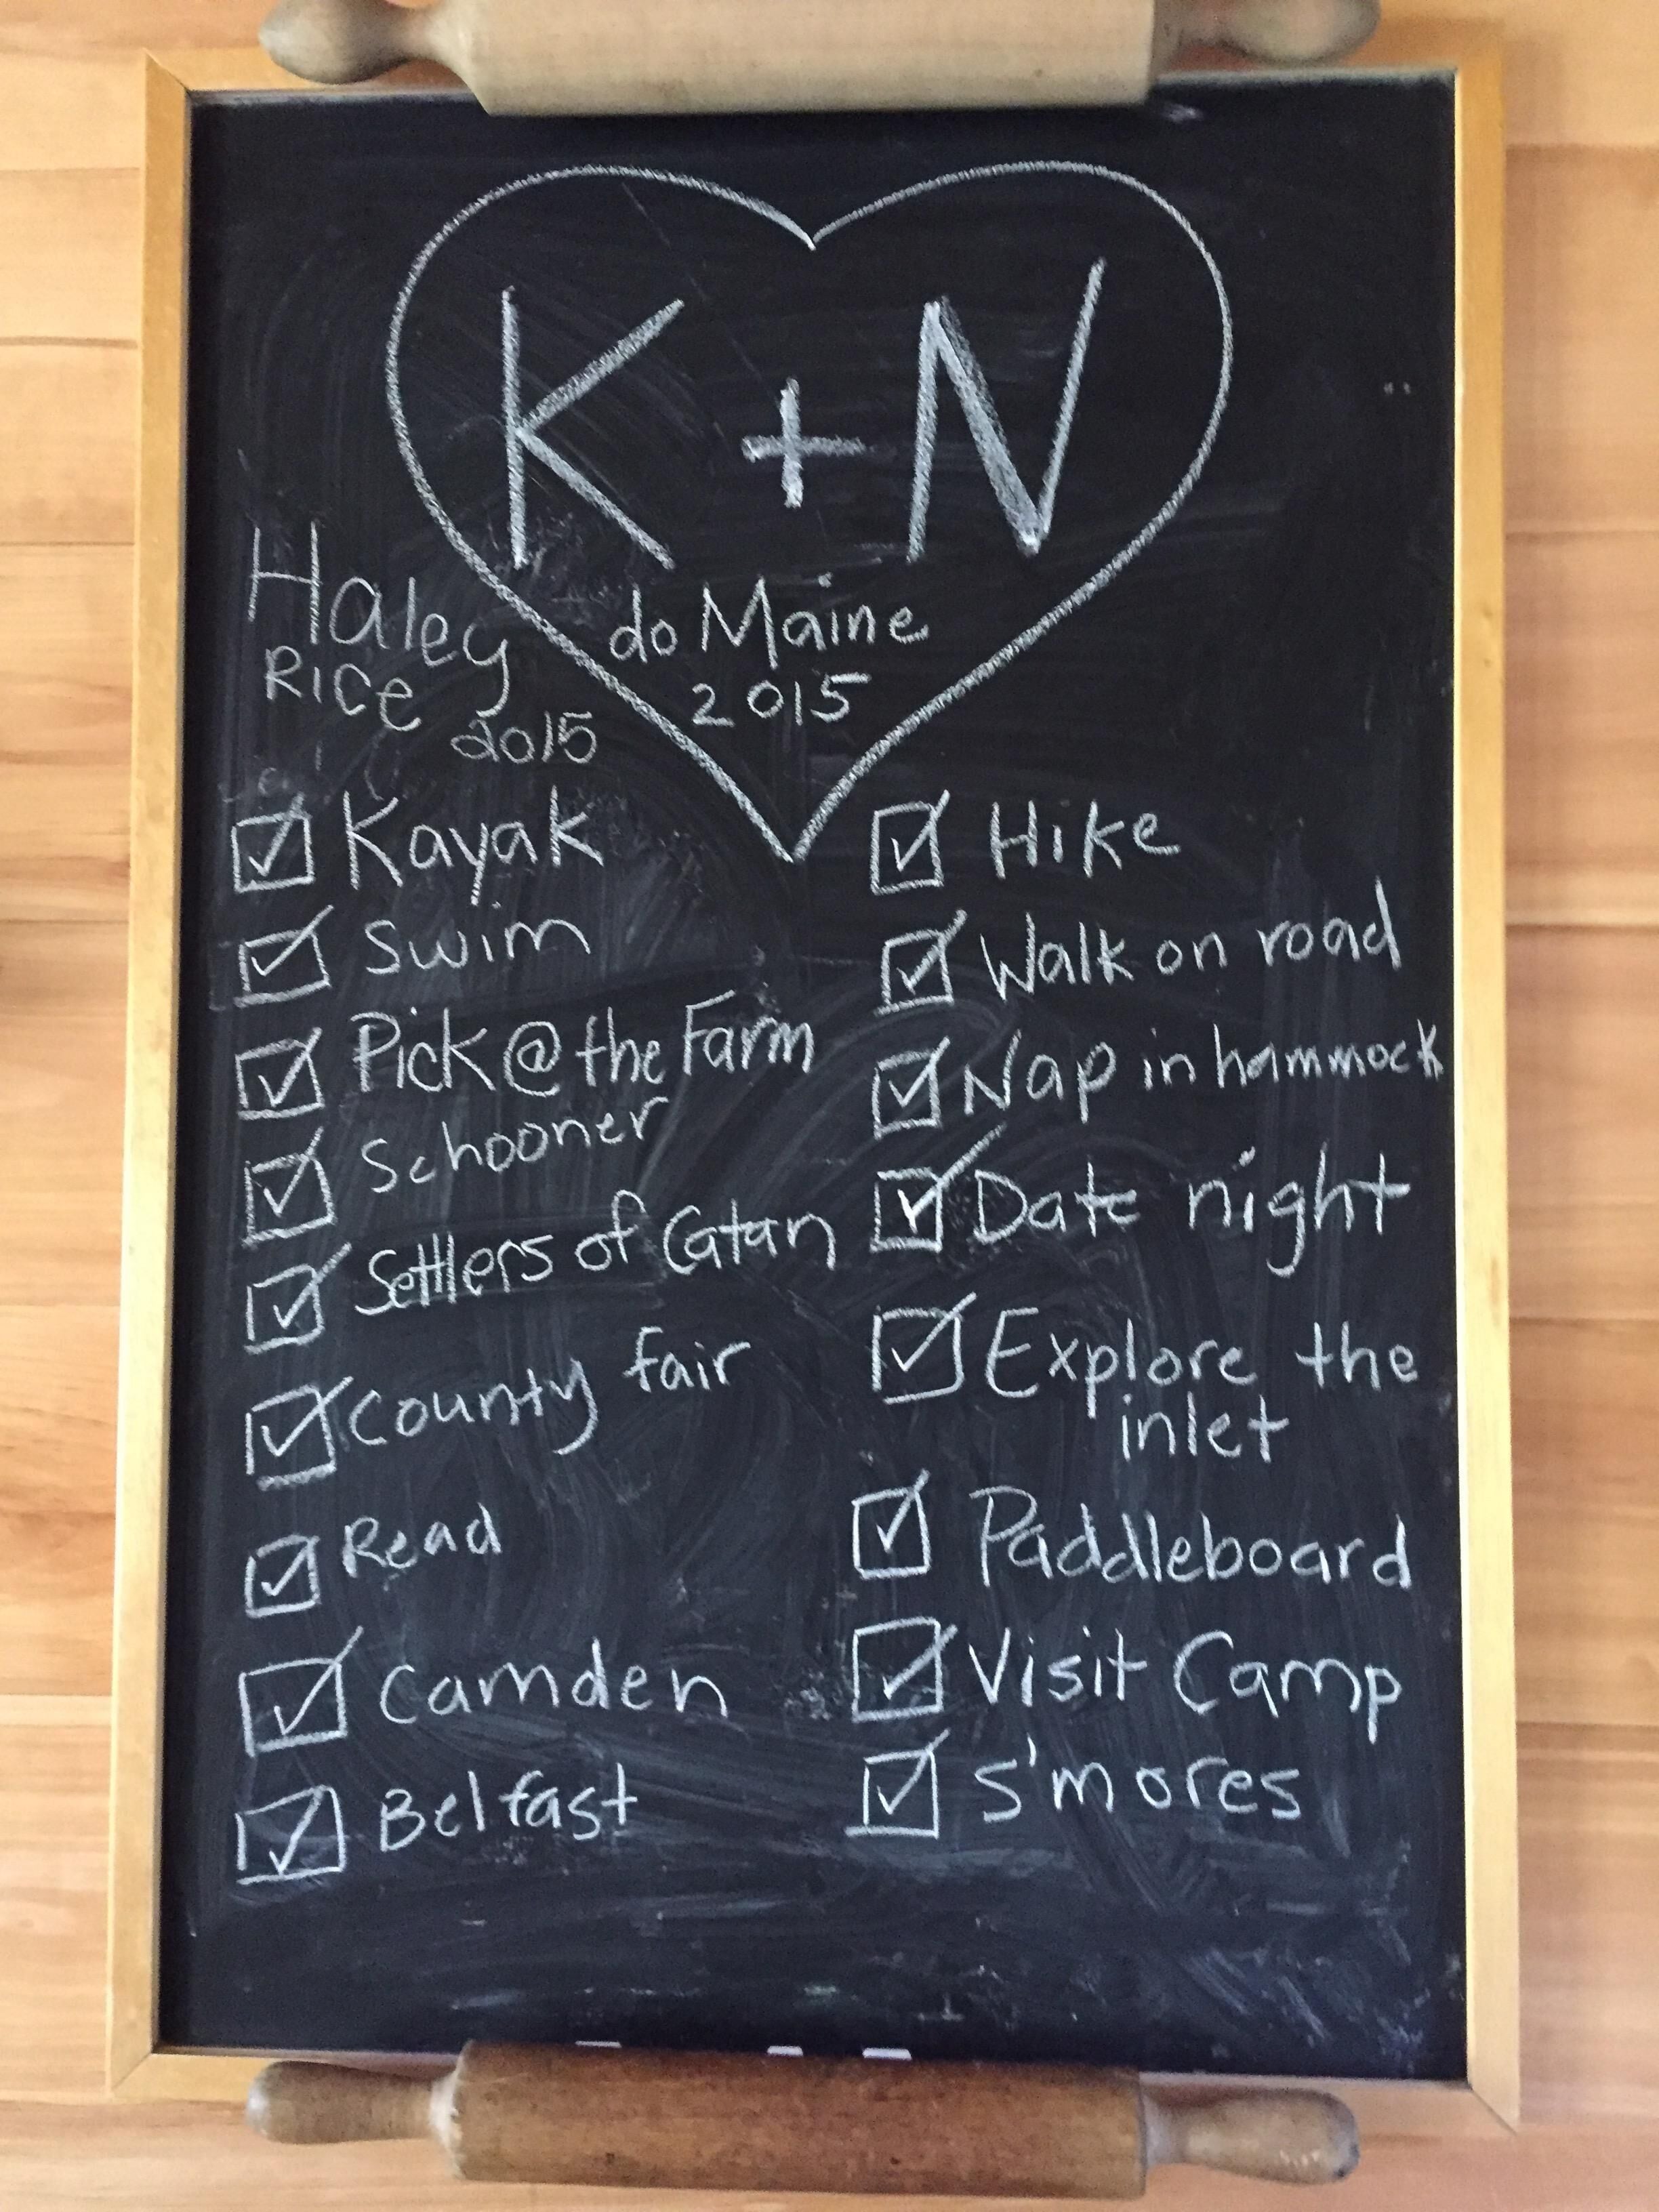 K + N
do Maine
2015
Haley
Rice
2015
Kayak
Swim
Pick @ the Farm
Schooner
Settlers of Catan
County fair
Read
Camden
Belfast
Hike
Walk on road
Nap in hammock
Date night
Explore the
inlet
Paddleboard
Visit Camp
S'mores